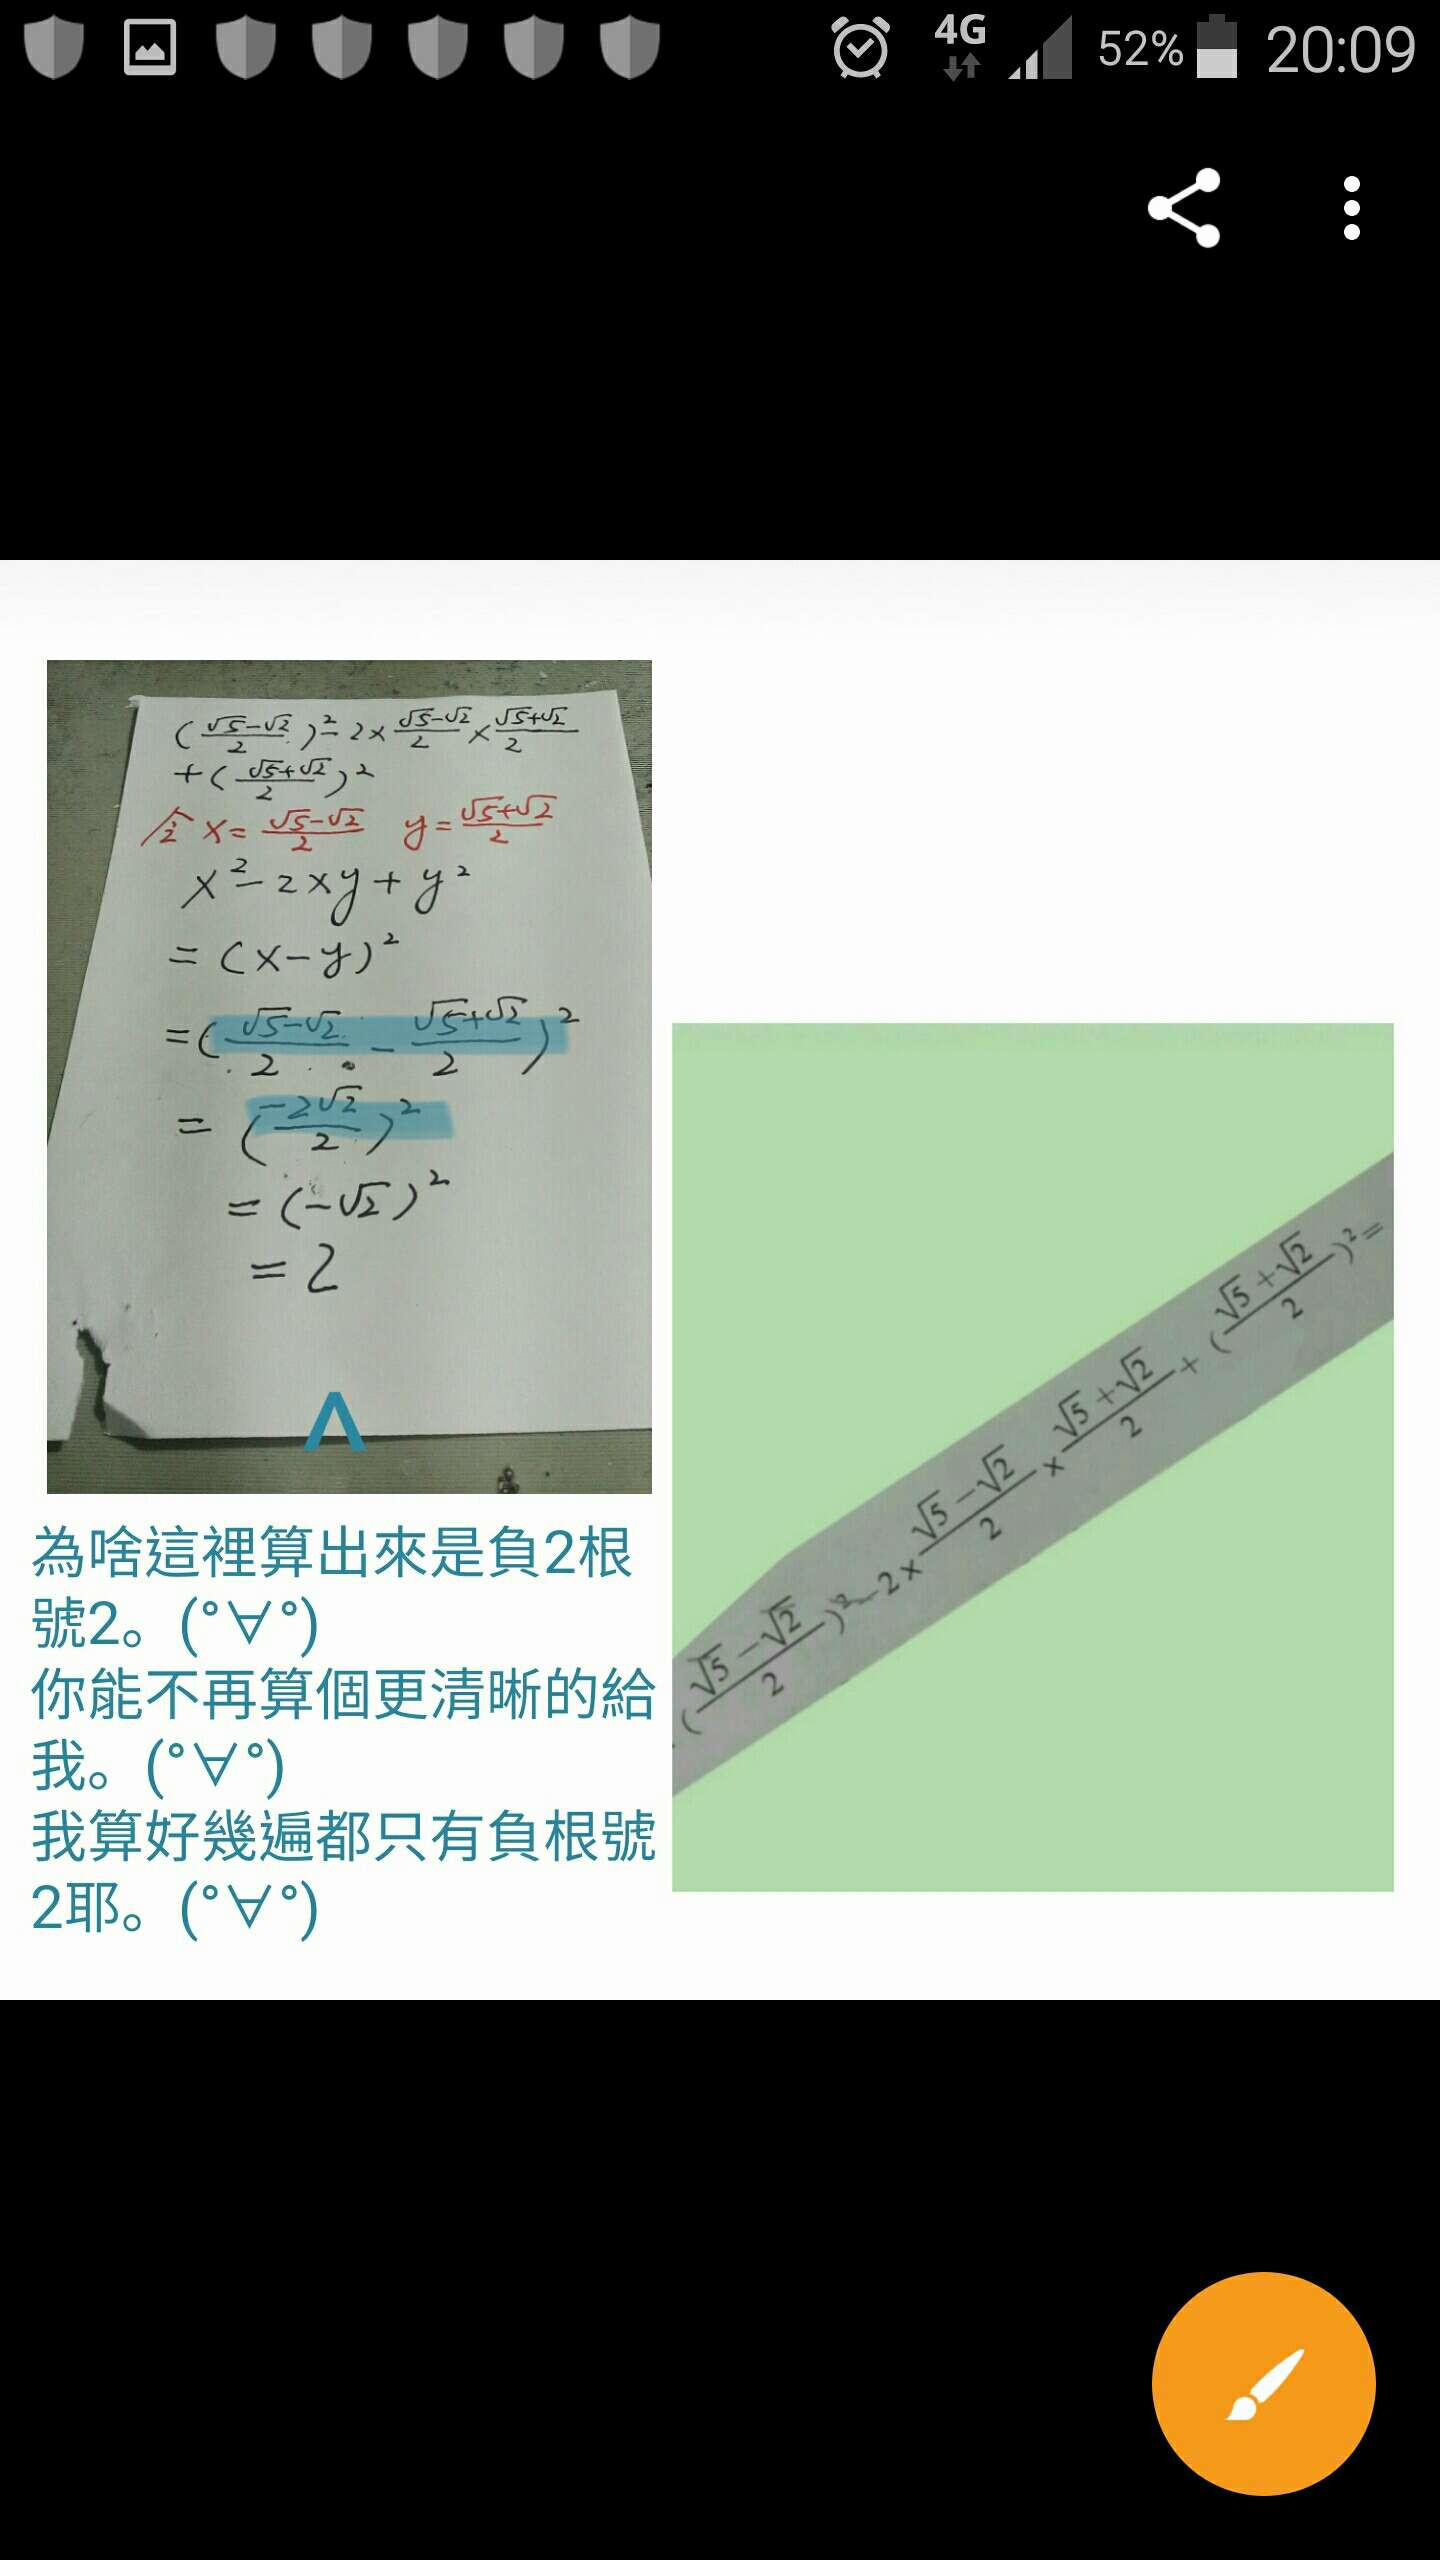 4G 52% 20:09
(√5-√2/2)²-2×√5-√2/2×√5+√2/2
+(√5+√2/2)²
x=√5-√2/2 y=√5+√2/2
x²-2xy+y²
=(x-y)²
=(√5-√2/2-√5+√2/2)²
=(-2√2/2)²
=(-√2)²
=2
^
為啥這裡算出來是負2根
號2。(°∀°)
你能不再算個更清晰的給
我。(°∀°)
我算好幾遍都只有負根號
2耶。(°∀°)
(√5-√2/2)²-2×√5-√2/2×√5+√2/2+(√5+√2/2)²=